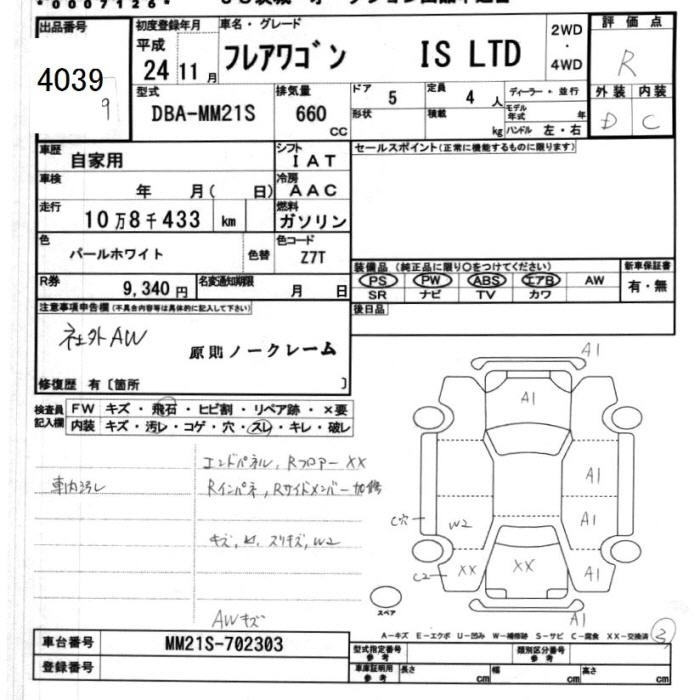 *0007126*
出品番号
4039
9
初度登録年月
平成
24 11月
車名・グレード
フレアワゴン IS LTD
2WD
・
4WD
評価点
R
外装 内装
D C
型式
DBA-MM21S
排気量
660
CC
ドア
5
定員
4 人
形状
積載
kg
ディーラー・並行
モデル年式 年
ハンドル 左・右
車歴
自家用
シフト
IAT
セールスポイント(正常に機能するものに限ります)
車検
年 月( 日)
冷房
AAC
走行
10万8千433 km
燃料
ガソリン
色
パールホワイト
色替
色コード
Z7T
装備品(純正品に限り〇をつけてください)
新車保証書
PS PW ABS エアB AW
有・無
SR ナビ TV カワ
R券
9,340円
名変通知期限
月 日
後日品
注意事項申告欄(不具合内容等は具体的に記入して下さい)
社外AW
原則ノークレーム
修復歴 有〔箇所 〕
検査員記入欄
FW キズ・飛石・ヒビ割・リペア跡・×要
内装 キズ・汚レ・コゲ・穴・スレ・キレ・破レ
エンドパネル, Rフロアー XX
車内汚レ
Rインパネ, Rサイドメンバー加修
キズ, 凹, スリキズ, W2
AWキズ
A1
A1
A1
C穴
W2
A1
C2
XX
XX
A1
A1
スペア
A-キズ E-エクボ U-凹み W-補修跡 S-サビ C-腐食 XX-交換済
3
車台番号
MM21S-702303
登録番号
型式指定番号
参考
類別区分番号
参考
車庫証明用
参考
長さ cm
幅 cm
高さ cm